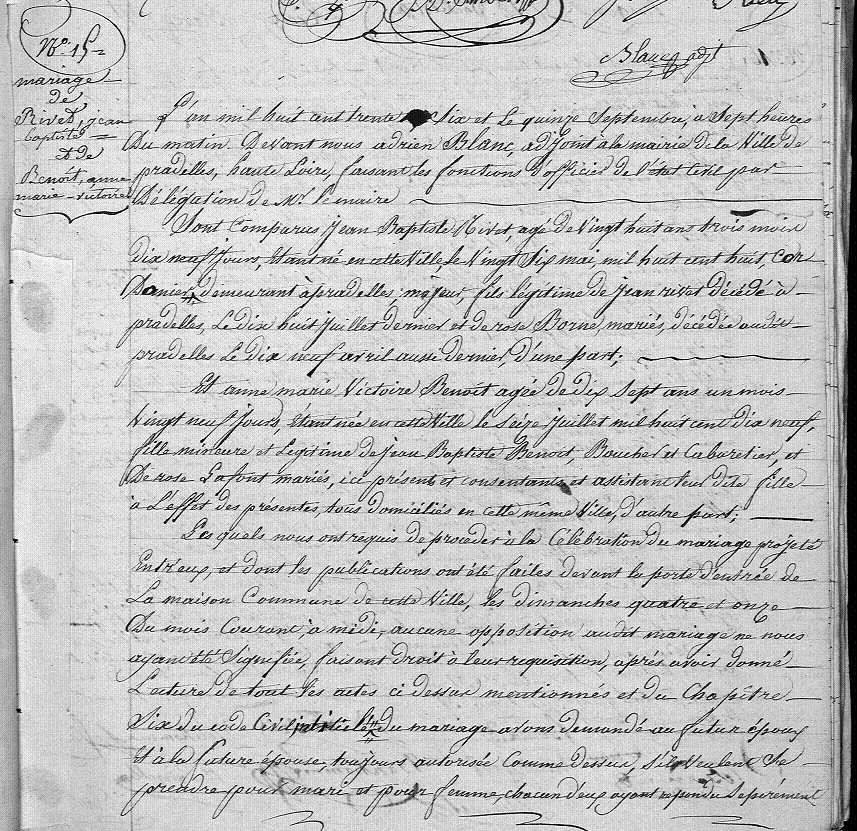 Blanc adjt
N° 15=
mariage
de
Rivet, jean
baptiste =
et de
Benoit, anne
marie-victoire
L'an mil huit cent trente Six et Le quinze Septembre, à Sept heures
Du matin. Devant nous adrien Blanc, adjoint à la mairie de la Ville de
pradelles, haute Loire, faisant les fonctions d'officier de l'état Civil par
Délégation de Mr. le maire
Sont Comparus Jean Baptiste Rivet, agé de Vingt huit ans trois mois
dix neuf Jours, Etant né en cette Ville, le Vingt Six mai, mil huit cent huit, Cor
Donier, demeurant à pradelles, majeur, fils légitime de Jean rivet décédé à
pradelles, Le dix huit Juillet dernier et de rose Borne, mariés, décédée audit
pradelles Le dix neuf avril aussi dernier, d'une part;
Et anne marie Victoire Benoit agée de dix Sept ans un mois
Vingt neuf Jours, Etant née en cette Ville le Seize Juillet mil huit cent dix neuf,
fille mineure et Légitime de Jean Baptiste Benoit, Boucher et Cabaretier, et
De rose Lafont mariés, ici présent et consentants et assistant leur dite fille
à L'effet des présentes, tous domiciliés en cette même Ville, d'autre part;
Les quels nous ont requis de procéder à la Célébration du mariage projeté
Entr'eux, et dont les publications ont été faites devant la porte d'entrée de
La maison Commune de cette Ville, les dimanches quatre et onze
Du mois Courant, à midi, aucune opposition audit mariage ne nous
ayant été Signifiée, faisant droit à leur requisition, après avoir donné
Lecture de tout les actes ci dessus mentionnés et du Chapitre
Six du code Civil intitulé du mariage avons demandé au futur époux
Et à la future épouse, toujours autorisée Comme dessus, s'ils Veulent Se
prendre pour mari et pour femme, chacun d'eux ayant repondu Séparément